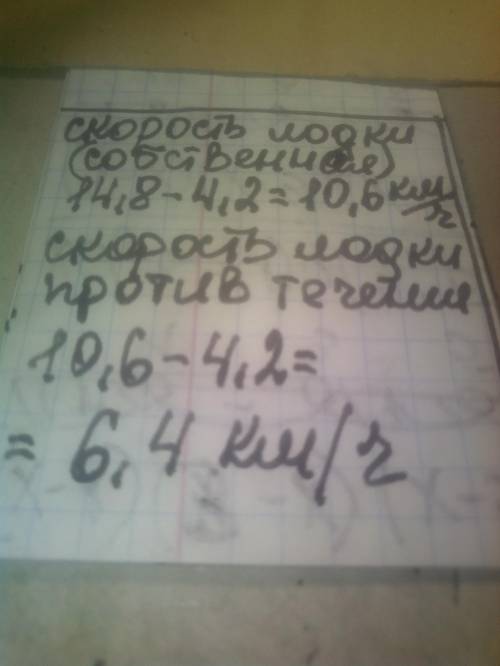 скорость лодки
(собственная)
14,8-4,2=10,6 км/ч
скорость лодки
против течения
10,6-4,2=
= 6,4 км/ч